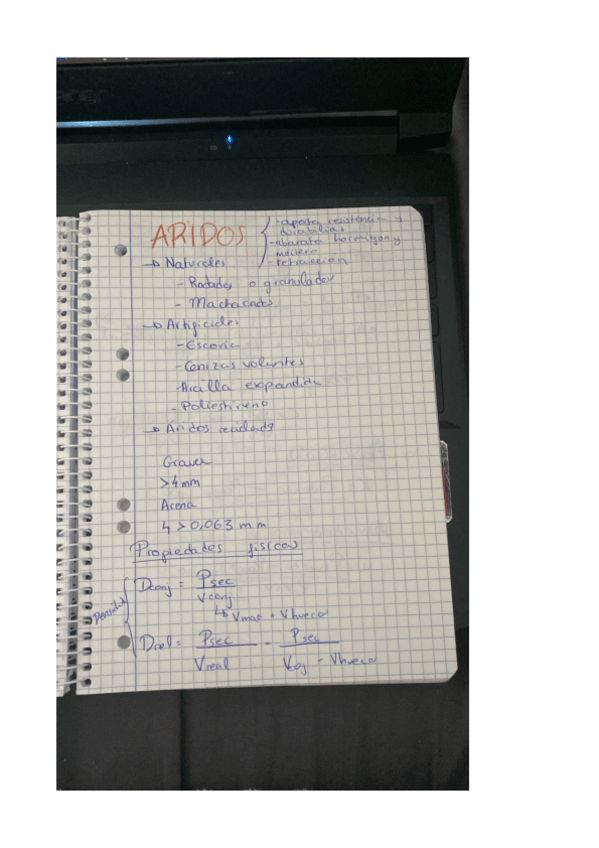 ARIDOS
- aporta resistencia y
durabilidad
- abarata hormigon y
mortero
- retraccion
→ Naturales
- Rodados o granulados
- Machacados
→ Artificiales
- Escoria
- Cenizas volantes
- Arcilla expandida
- Poliestireno
→ Aridos reciclados
Grava
>4mm
Arena
4 > 0,063 mm
Propiedades fisicas
Densidad
Dconj = Psec / Vconj
↳ Vmat + Vhueco
Drel = Psec / Vreal = Psec / Vconj - Vhueco